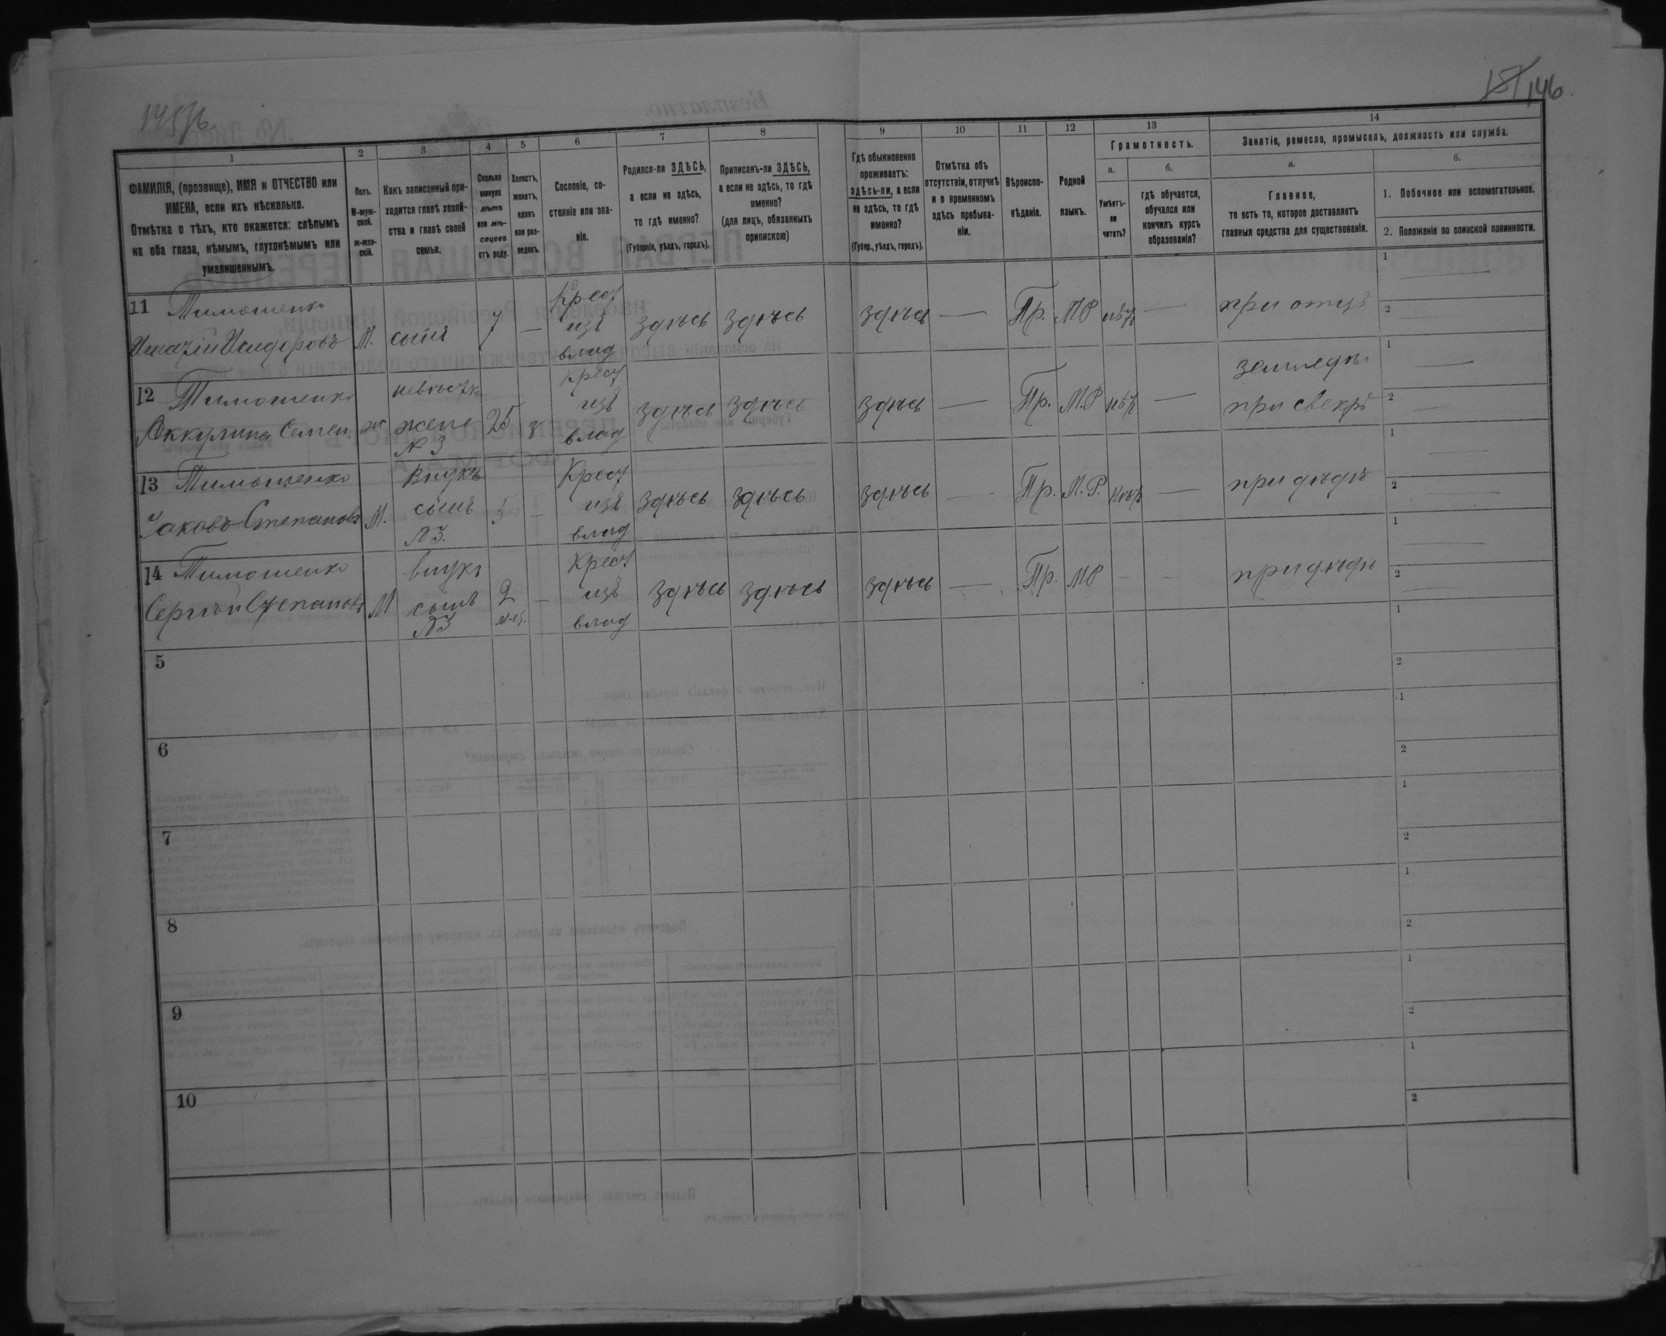 146
1
2
3
4
5
6
7
8
9
10
11
12
13
14
ФАМИЛІЯ, (прозвище), ИМЯ и ОТЧЕСТВО или
ИМЕНА, если ихъ нѣсколько.
Отмѣтка о тѣхъ, кто окажется: слѣпымъ
на оба глаза, нѣмымъ, глухонѣмымъ или
умалишеннымъ.
Полъ.
М-муж-
ской.
Ж-жен-
скій.
Какъ записанный при-
ходится главѣ хозяй-
ства и главѣ своей
семьи.
Сколько
минуло
лѣтъ
или мѣ-
сяцевъ
отъ роду.
Холостъ,
женатъ,
вдовъ
или раз-
веденъ.
Сословіе, со-
стояніе или зва-
ніе.
Родился-ли ЗДѢСЬ,
а если не здѣсь,
то гдѣ именно?
(Губернія, уѣздъ, городъ).
Приписанъ-ли ЗДѢСЬ,
а если не здѣсь, то гдѣ
именно?
(для лицъ, обязанныхъ
припискою)
Гдѣ обыкновенно
проживаетъ:
здѣсь-ли, а если
не здѣсь, то гдѣ
именно?
(Губер., уѣздъ, городъ).
Отмѣтка объ
отсутствіи, отлучкѣ
и о временномъ
здѣсь пребыва-
ніи.
Вѣроиспо-
вѣданіе.
Родной
языкъ.
Грамотность.
а.
Умѣетъ-
ли
читать?
б.
гдѣ обучается,
обучался или
кончилъ курсъ
образованія?
Занятіе, ремесло, промыселъ, должность или служба.
а.
Главное,
то есть то, которое доставляетъ
главныя средства для существованія.
б.
1. Побочное или вспомогательное.
2. Положеніе по воинской повинности.
11 Тимошенко
Игнатій Исидоровъ М. сынъ 7 — Крест изъ влад здѣсь здѣсь здѣсь — Пр. МР нѣтъ — при отцѣ
1
2
12 Тимошенко
Аккулина Семен. ж невѣстка жена №3 25 з Крест изъ влад здѣсь здѣсь здѣсь — Пр. М.Р нѣтъ — земледѣл при свекрѣ
1
2
13 Тимошенко
Яковъ Степановъ М. внукъ сынъ №3. 5 — Крест изъ влад здѣсь здѣсь здѣсь — Пр. М.Р. нѣтъ — при дѣдѣ
1
2
14 Тимошенко
Сергѣй Степановъ М внукъ сынъ №3 2 — Крест изъ влад здѣсь здѣсь здѣсь — Пр. МР — — при дѣдѣ
1
2
5
1
2
6
1
2
7
1
2
8
1
2
9
1
2
10
1
2